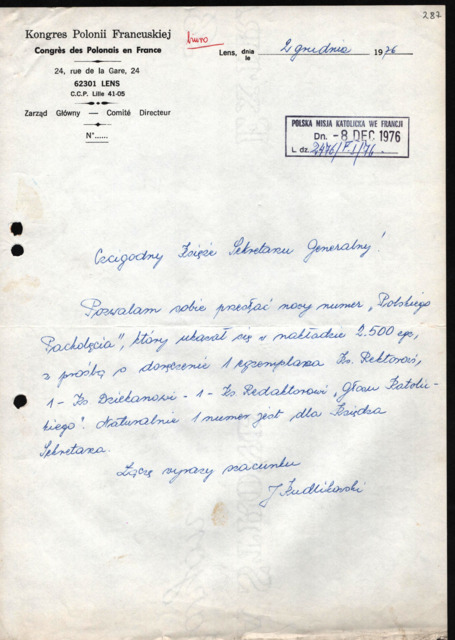 287
Kongres Polonii Francuskiej
Congrès des Polonais en France
24, rue de la Gare, 24
62301 LENS
C.C.P. Lille 41-05
Zarząd Główny — Comité Directeur
N°......
biuro
Lens, dnia le 2 grudnia 1976
POLSKA MISJA KATOLICKA WE FRANCJI
Dn. -8 DEC 1976
L. dz. 2476/F.I/76
Czcigodny Księże Sekretarzu Generalny!
Pozwalam sobie przesłać nowy numer „Polskiego
Pacholęcia", który ukazał się w nakładzie 2.500 egz,
z prośbą o doręczenie 1 egzemplarza Ks. Rektorowi,
1 - Ks Dziekanowi - 1 - Ks. Redaktorowi „Głosu Katolic-
kiego". Naturalnie 1 numer jest dla Księdza
Sekretarza.
Łączę wyrazy szacunku
J Kudlikowski